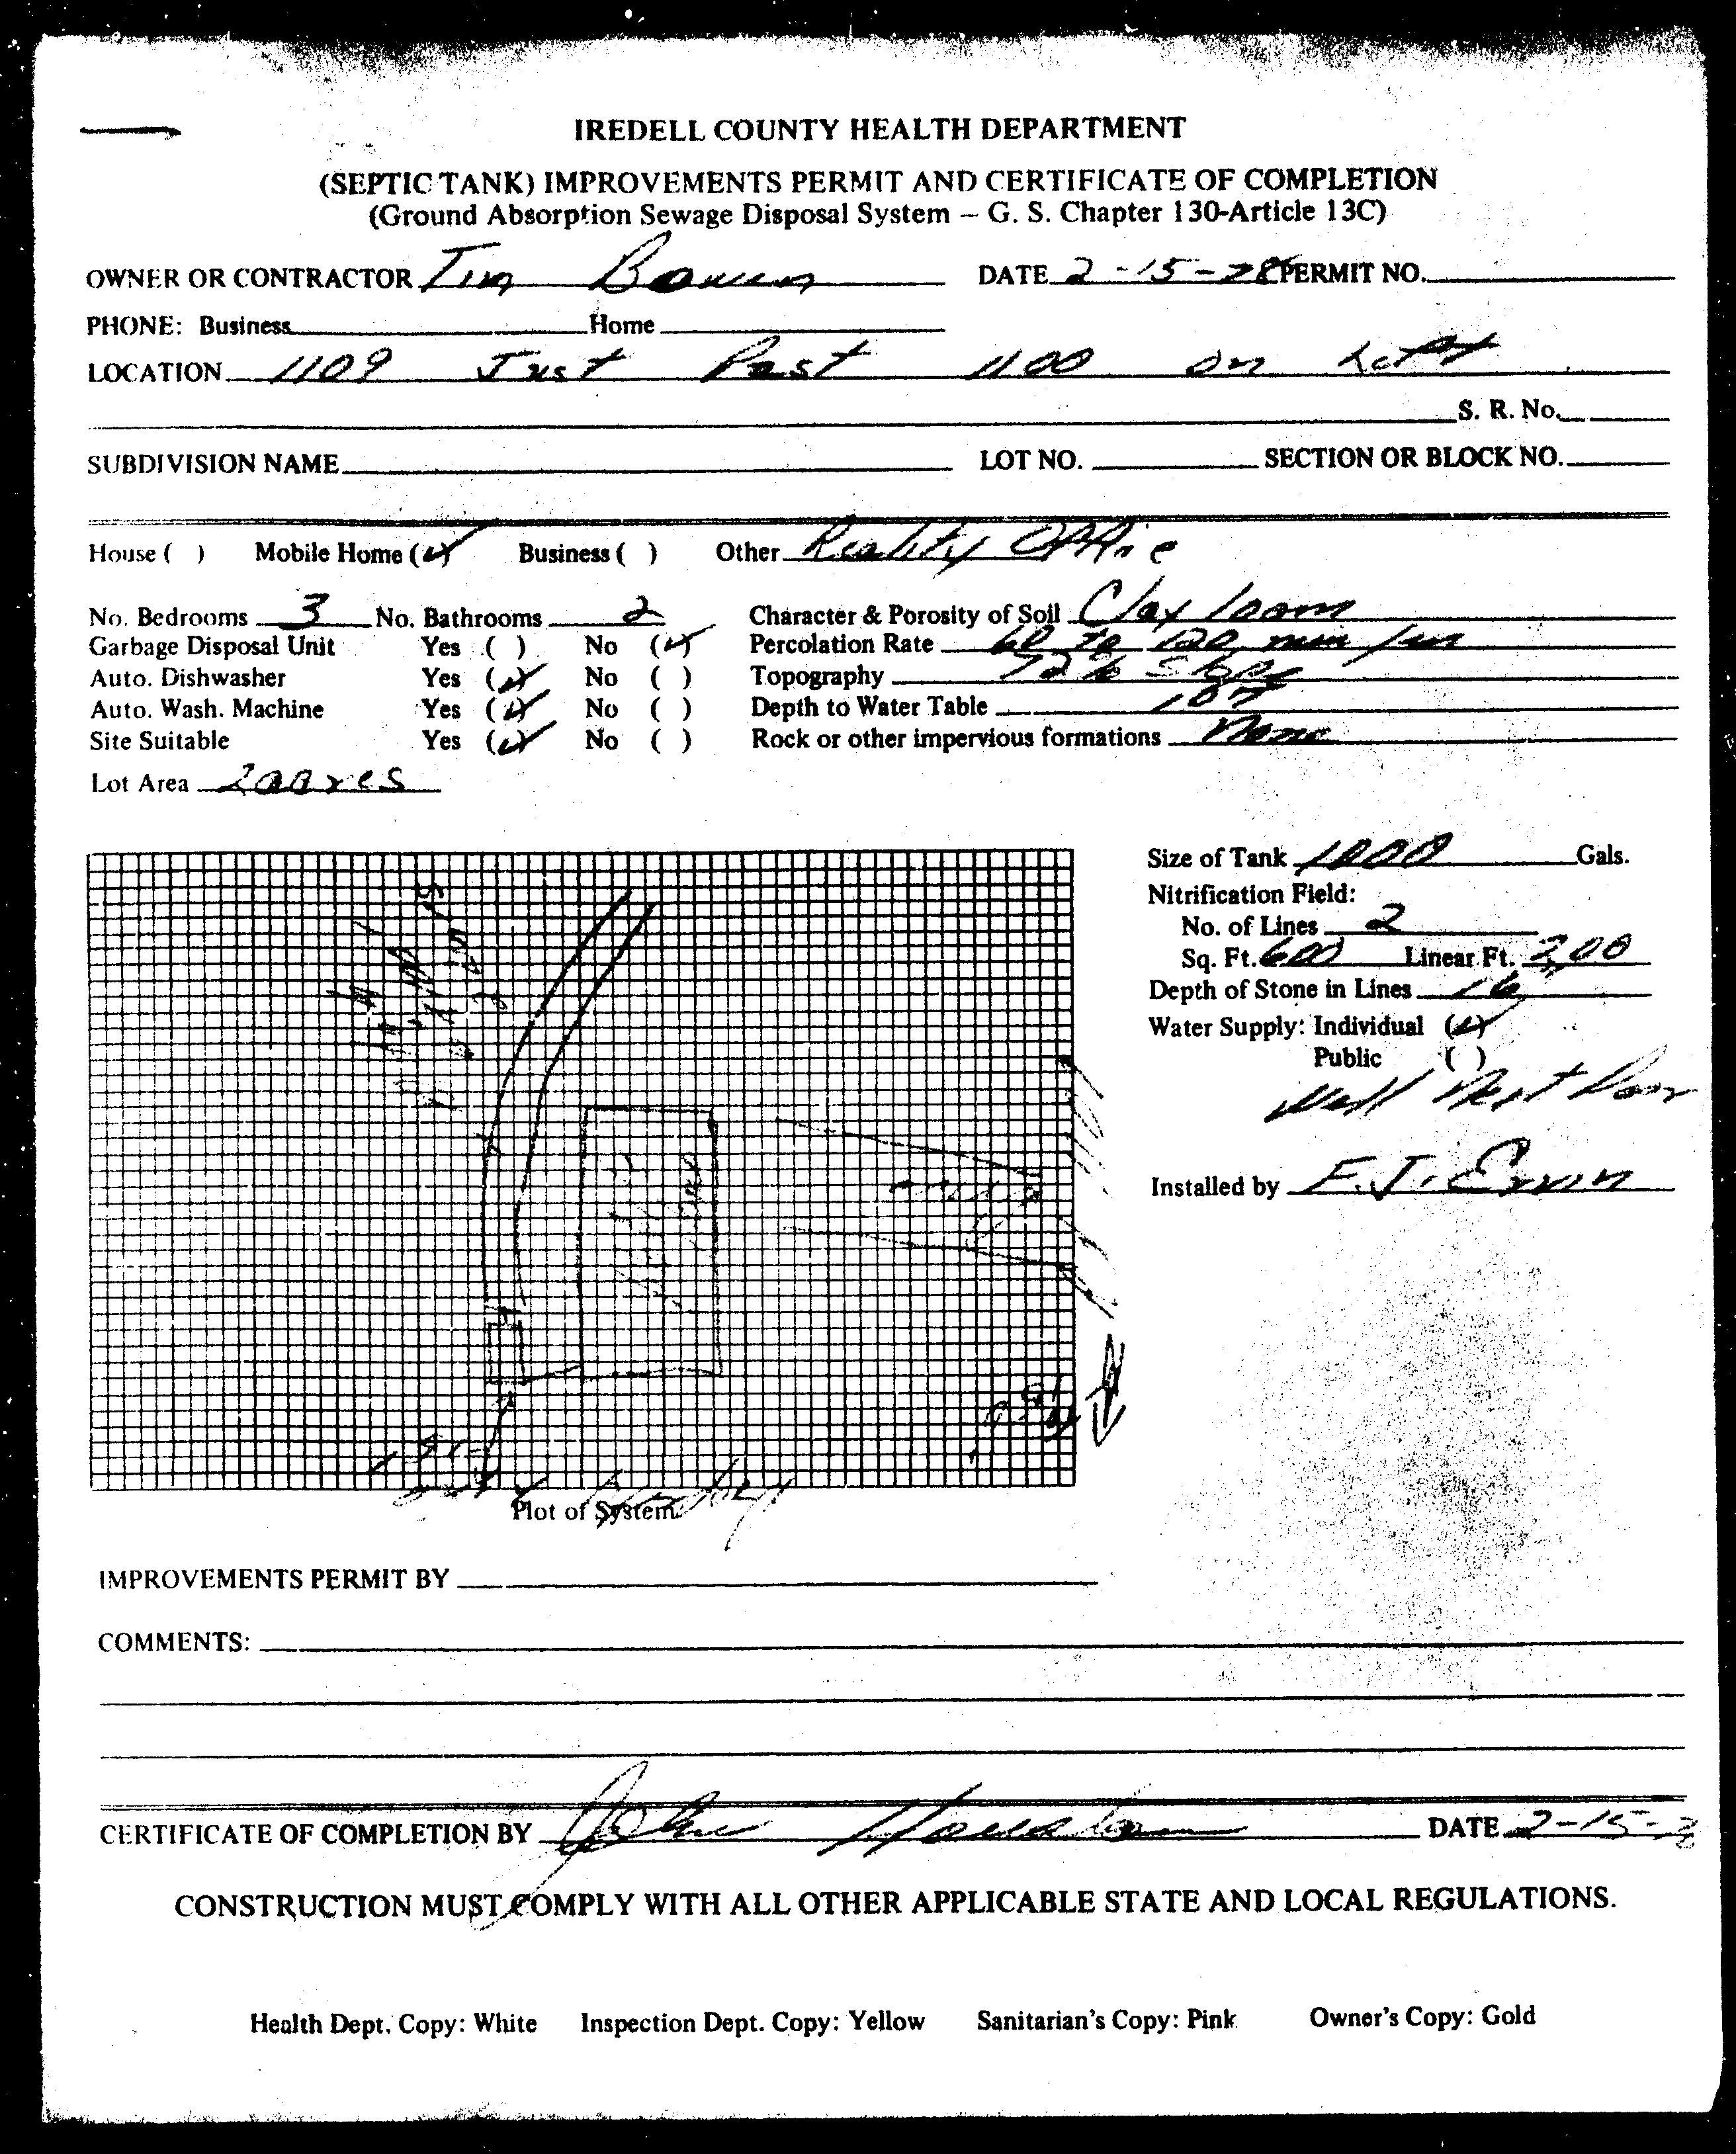 IREDELL COUNTY HEALTH DEPARTMENT
(SEPTIC TANK) IMPROVEMENTS PERMIT AND CERTIFICATE OF COMPLETION
(Ground Absorption Sewage Disposal System – G. S. Chapter 130-Article 13C)
OWNER OR CONTRACTOR DATE 2-15-78 PERMIT NO.
PHONE: Business Home
LOCATION 1109 Just Past 1100 on Left
S. R. No.
SUBDIVISION NAME LOT NO. SECTION OR BLOCK NO.
House ( ) Mobile Home (✓) Business ( ) Other Reality Office
No. Bedrooms 3 No. Bathrooms 2 Character & Porosity of Soil Clay loam
Garbage Disposal Unit Yes ( ) No (✓) Percolation Rate 60 to 120 min/in
Auto. Dishwasher Yes (✓) No ( ) Topography Slope
Auto. Wash. Machine Yes (✓) No ( ) Depth to Water Table
Site Suitable Yes (✓) No ( ) Rock or other impervious formations None
Lot Area 2 acres
Size of Tank 1000 Gals.
Nitrification Field:
No. of Lines 2
Sq. Ft. 600 Linear Ft. 200
Depth of Stone in Lines 16
Water Supply: Individual (✓)
Public ( )
Well Next Door
Installed by E.J. Ervin
Plot of System
IMPROVEMENTS PERMIT BY
COMMENTS:
CERTIFICATE OF COMPLETION BY John DATE 2-15-78
CONSTRUCTION MUST COMPLY WITH ALL OTHER APPLICABLE STATE AND LOCAL REGULATIONS.
Health Dept. Copy: White Inspection Dept. Copy: Yellow Sanitarian's Copy: Pink Owner's Copy: Gold